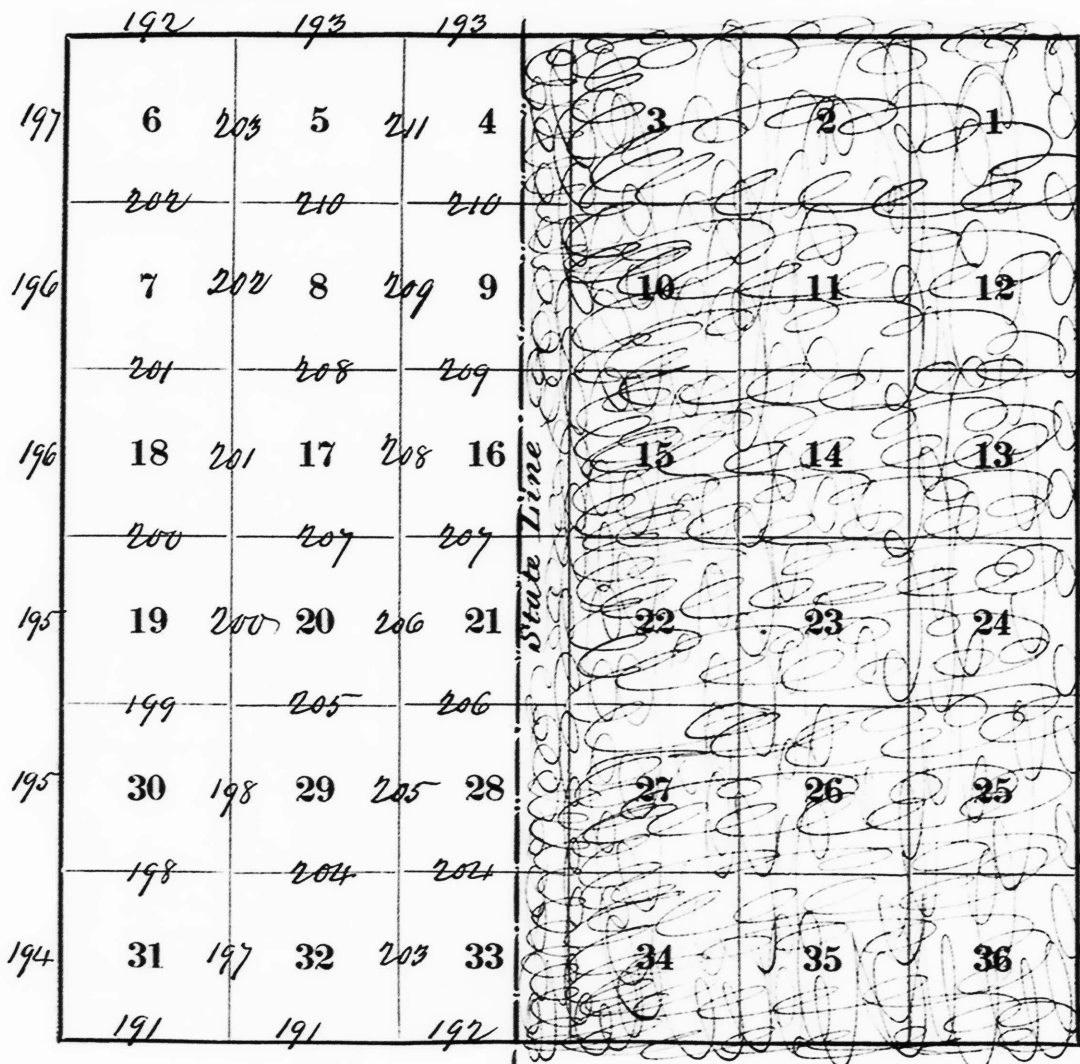 192 193 193
197 6 203 5 211 4 3 2 1
202 210 210
196 7 202 8 209 9 10 11 12
201 208 209
196 18 201 17 208 16 15 14 13
State Line
200 207 207
195 19 200 20 206 21 22 23 24
199 205 206
195 30 198 29 205 28 27 26 25
198 204 204
194 31 197 32 203 33 34 35 36
191 191 192